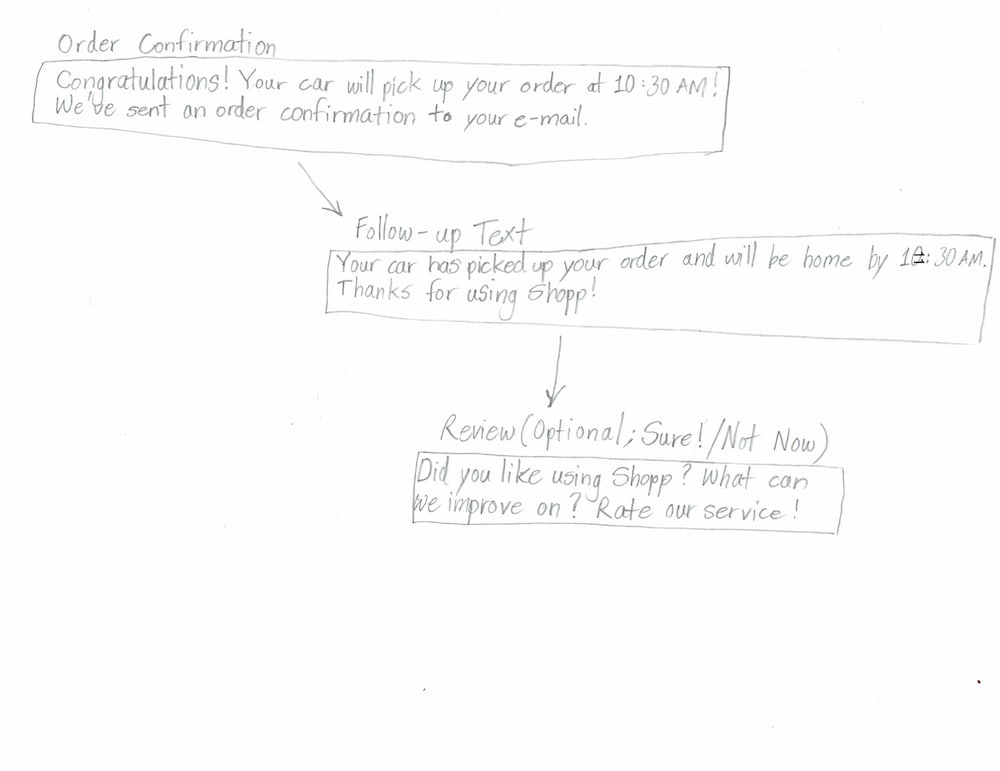 Order Confirmation
Congratulations! Your car will pick up your order at 10:30 AM!
We've sent an order confirmation to your e-mail.
Follow-up Text
Your car has picked up your order and will be home by :30 AM.
Thanks for using Shopp!
Review (Optional; Sure!/Not Now)
Did you like using Shopp? What can
we improve on? Rate our service!